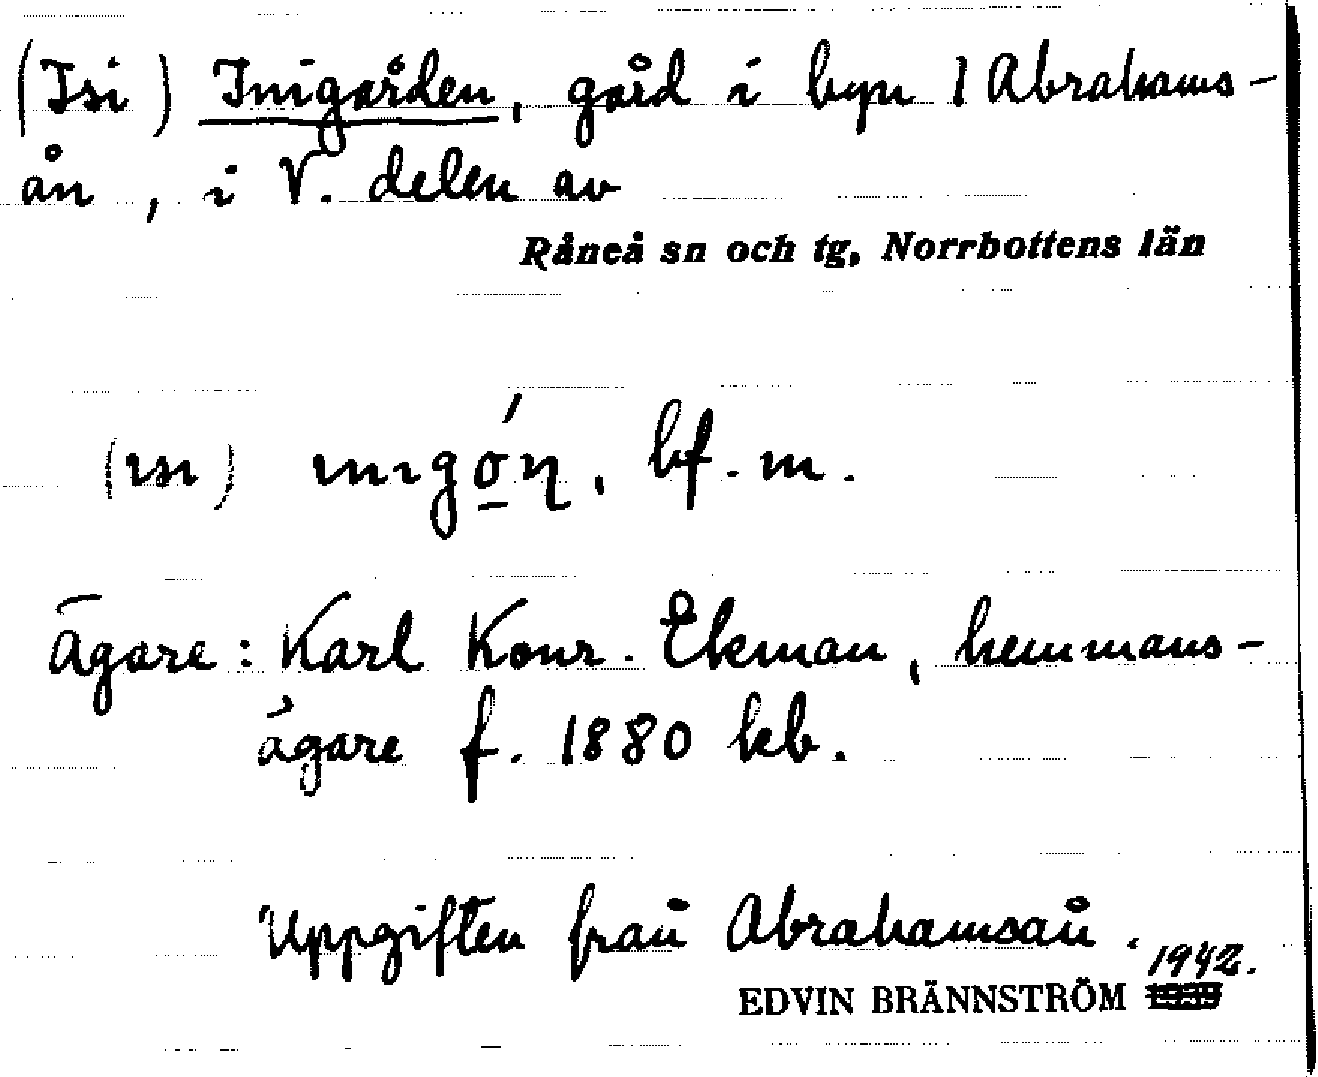 (Isi) Inigården, gård i byn 1 Abrahams-
ån, i V. delen av
Råneå sn och tg, Norrbottens län
(ısı) ınıgó̲ɳ, bf. m.
Ägare: Karl Konr. Ekman, hemmans-
ägare f. 1880 kb.
Uppgiften från Abrahamsån.
1942.
EDVIN BRÄNNSTRÖM 1939